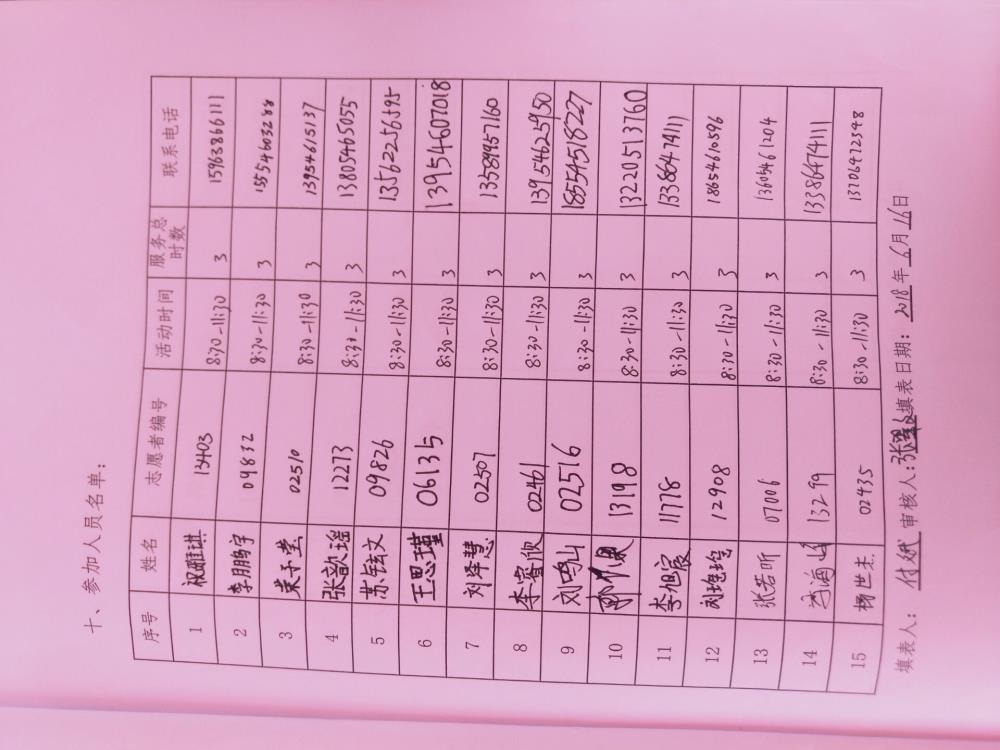 十、参加人员名单：
序号 姓名 志愿者编号 活动时间 服务总时数 联系电话
1 13403 8:30-11:30 3 15963866111
2 李鹏宇 09832 8:30-11:30 3 15554603288
3 荣子莹 02510 8:30-11:30 3 13954615137
4 张韵瑶 12273 8:30-11:30 3 13805465055
5 苏铉文 09826 8:30-11:30 3 13562256595
6 王思瑾 06135 8:30-11:30 3 13954607018
7 刘泽慧 02507 8:30-11:30 3 13589957160
8 李睿欣 02461 8:30-11:30 3 13954625950
9 刘鸣山 02516 8:30-11:30 3 18554518227
10 13198 8:30-11:30 3 13220513760
11 李旭宸 11778 8:30-11:30 3 13386474111
12 12908 8:30-11:30 3 18654610596
13 张若昕 07006 8:30-11:30 3 13605461204
14 13299 8:30-11:30 3 13386474111
15 02435 8:30-11:30 3 13706412348
填表人： 审核人： 填表日期：2018年6月16日